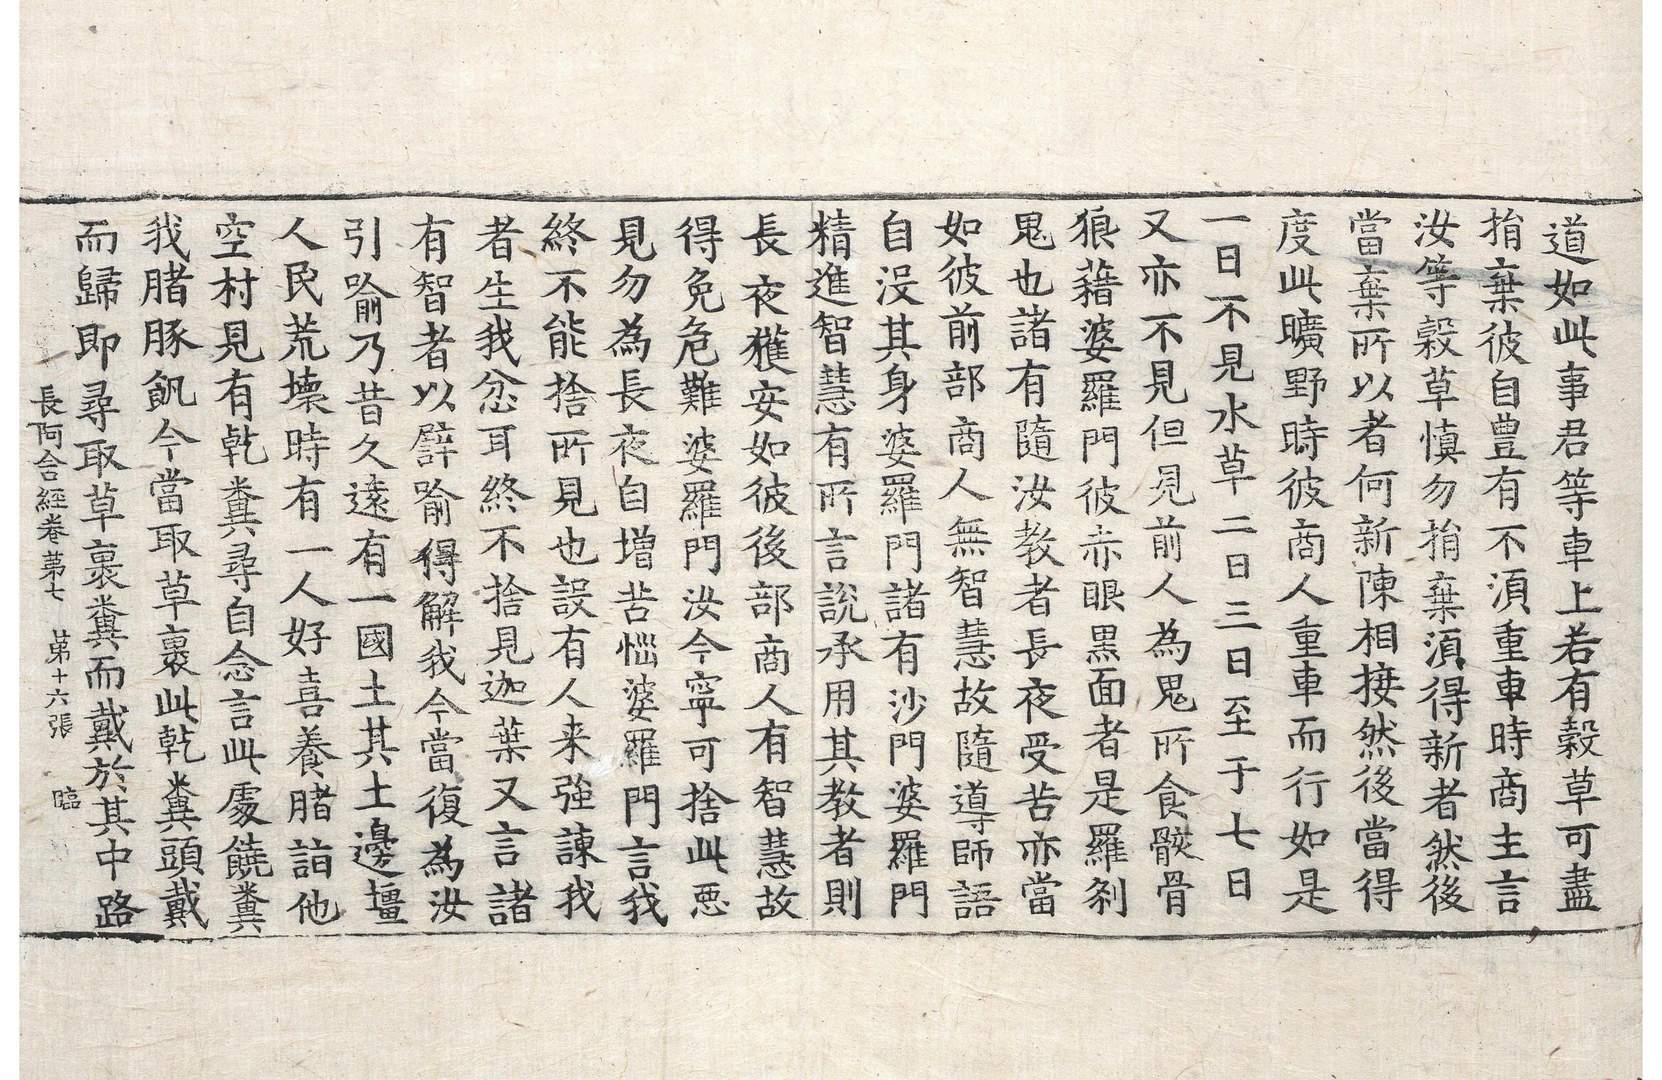 道如此事君等車上若有穀草可盡
捐棄彼自豊有不湏重車時商主言
汝等穀草慎勿捐棄湏得新者然後
當棄所以者何新陳相接然後當得
度此曠野時彼商人重車而行如是
一日不見水草二日三日至于七日
又亦不見但見前人為鬼所食骸骨
狼藉婆羅門彼赤眼黑面者是羅刹
鬼也諸有隨汝教者長夜受苦亦當
如彼前部商人無智慧故隨導師語
自没其身婆羅門諸有沙門婆羅門
精進智慧有所言說承用其教者則
長夜獲安如彼後部商人有智慧故
得免危難婆羅門汝今寧可捨此惡
見勿為長夜自增苦惱婆羅門言我
終不能捨所見也設有人来強諫我
者生我忿耳終不捨見迦葉又言諸
有智者以譬喻得解我今當復為汝
引喻乃昔久遠有一國土其土邊壃
人民荒壞時有一人好喜養猪詣他
空村見有乾糞尋自念言此處饒糞
我猪豚飢今當取草裹此乾糞頭戴
而歸即尋取草裹糞而戴於其中路
長阿含經卷第七 第十六張 臨